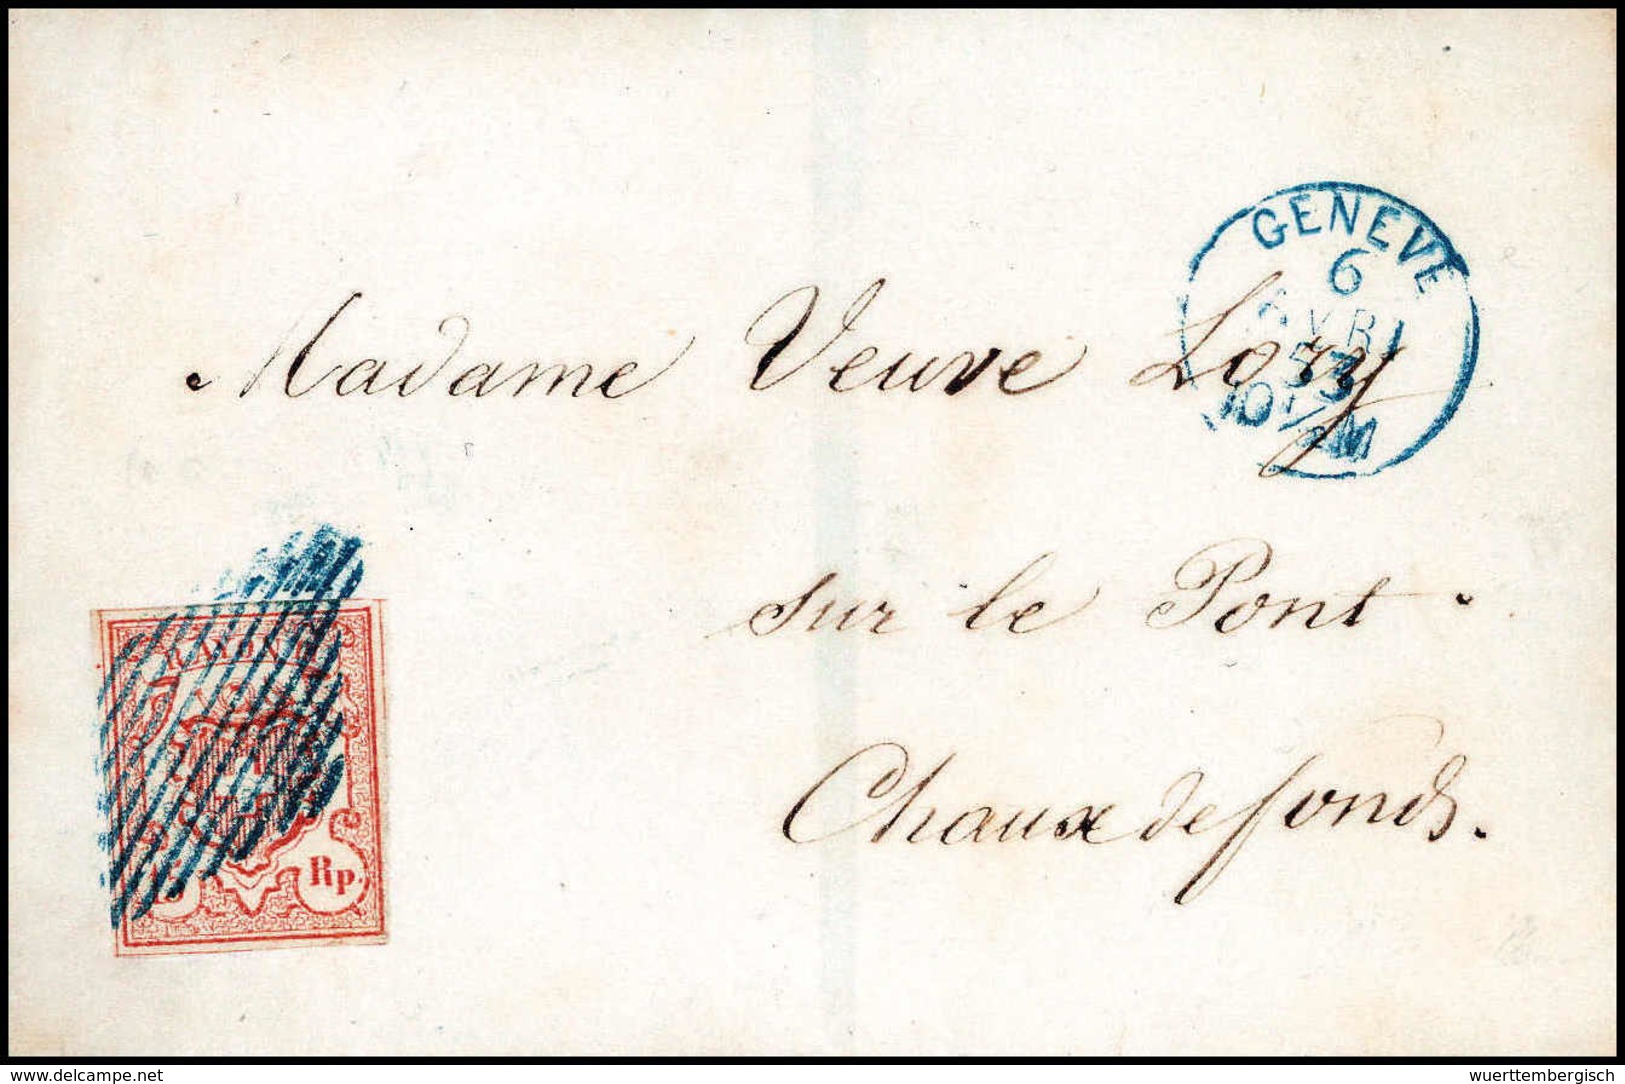 GENEVE
6
AVRI
53
10½ M
Madame Veuve Lory
sur le Pont
Chaux de fonds.
RAYON
15 Rp.
www.delcampe.net
wuerttembergisch